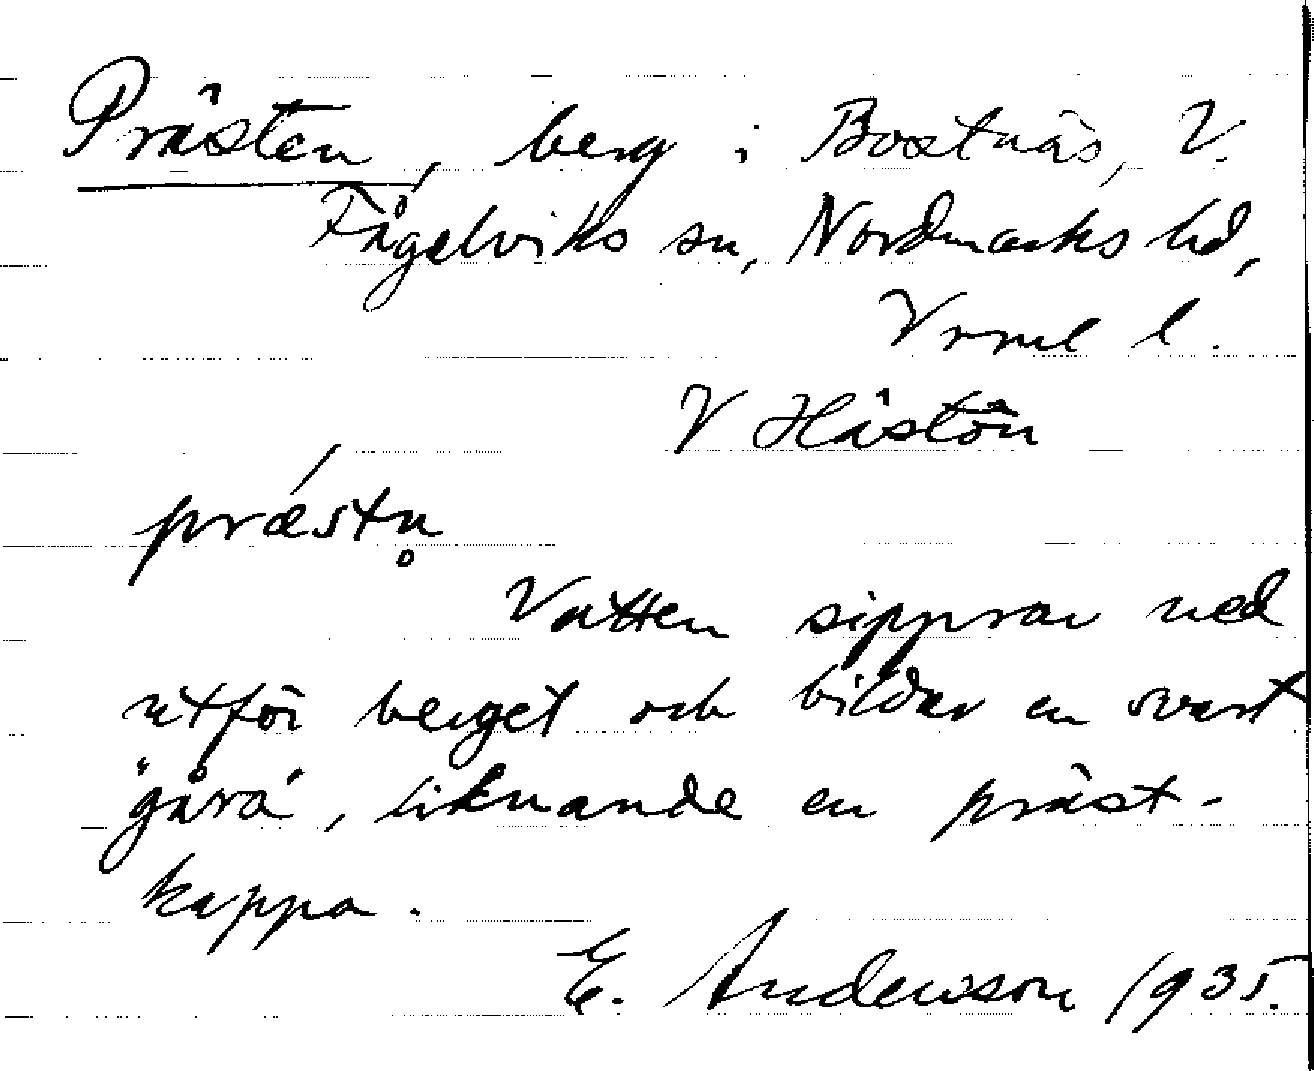 Prästen, berg i Bostnäs, V.
Fågelviks sn, Nordmarks hd,
Vrml l.
V Hästön
præ´stn̥
Vatten sipprar ned
utför berget och bildar en svart
"gåra", liknande en präst-
kappa.
E. Andersson 1935.